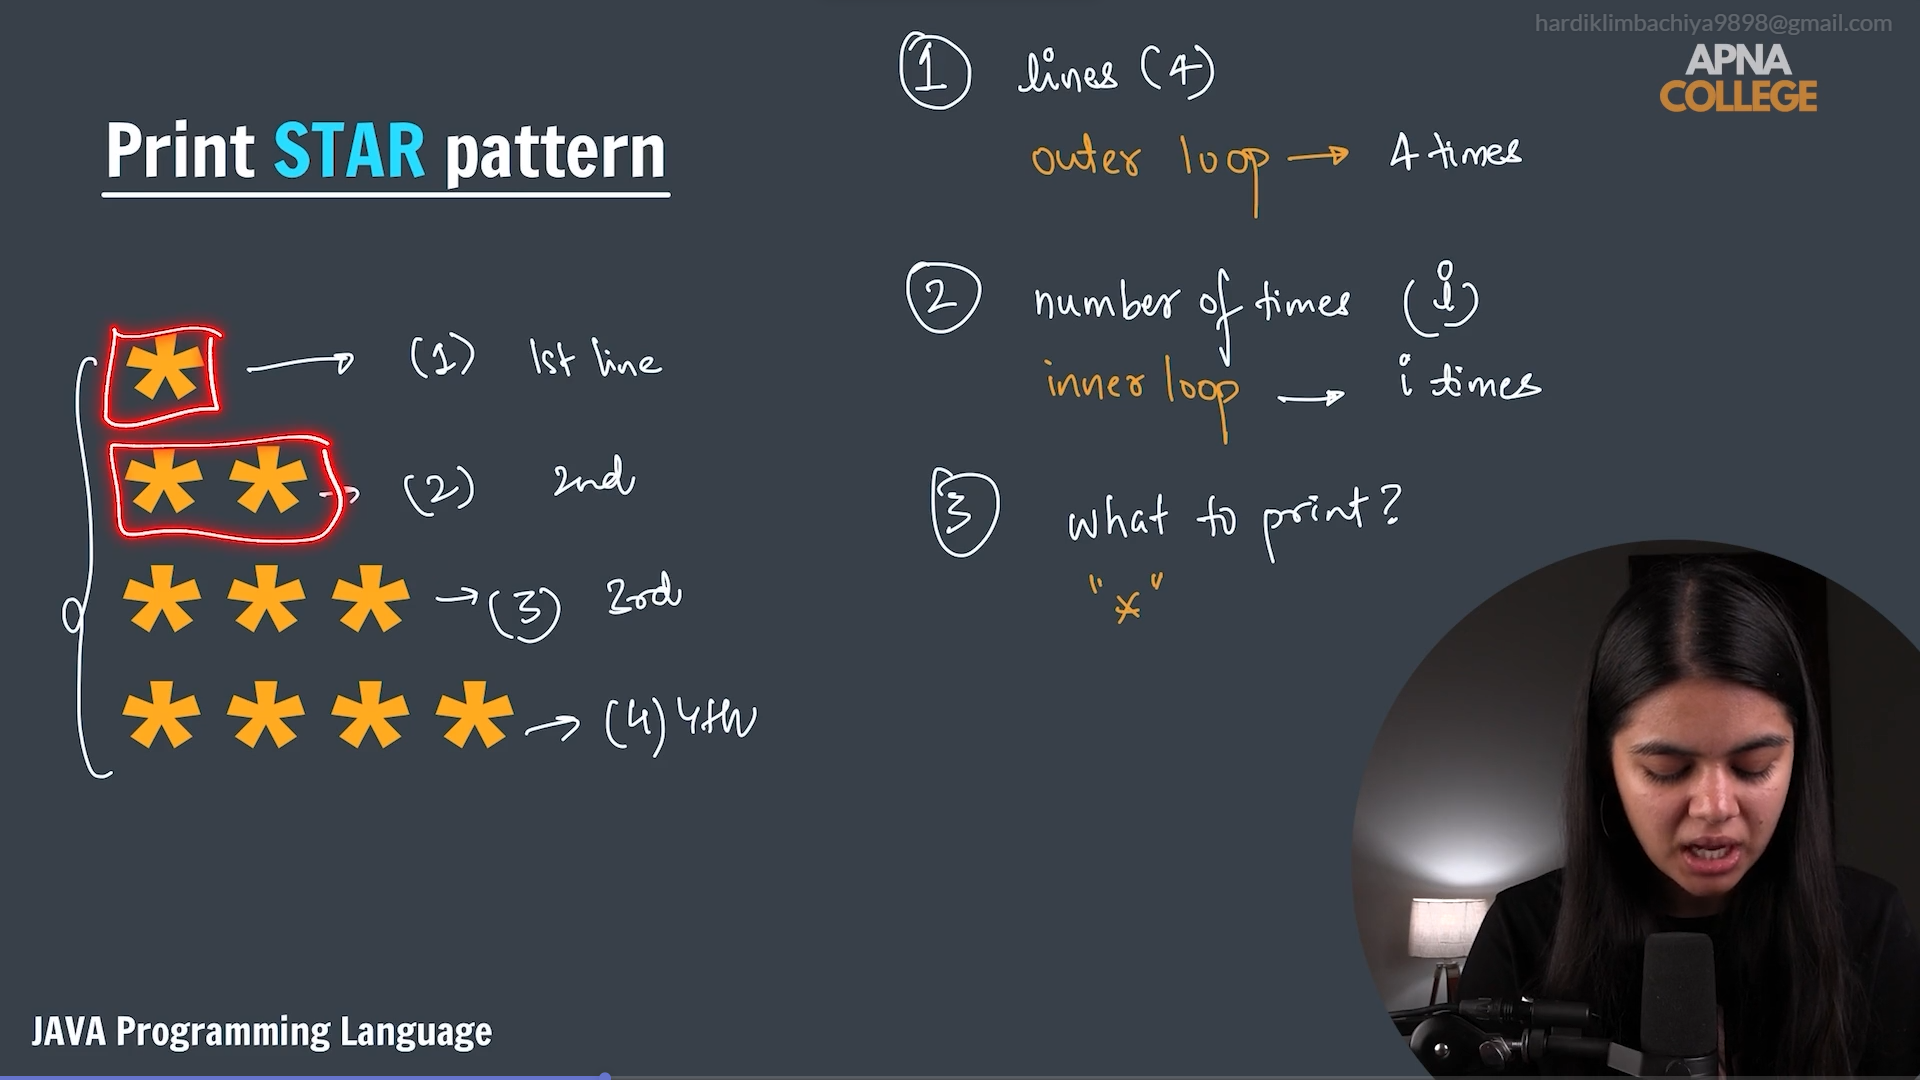 hardiklimbachiya9898@gmail.com
APNA
COLLEGE
Print STAR pattern
* → (1) 1st line
* * → (2) 2nd
* * * → (3) 3rd
* * * * → (4) 4th
① lines (4)
outer loop → 4 times
② number of times (i)
inner loop → i times
③ what to print?
"*"
JAVA Programming Language